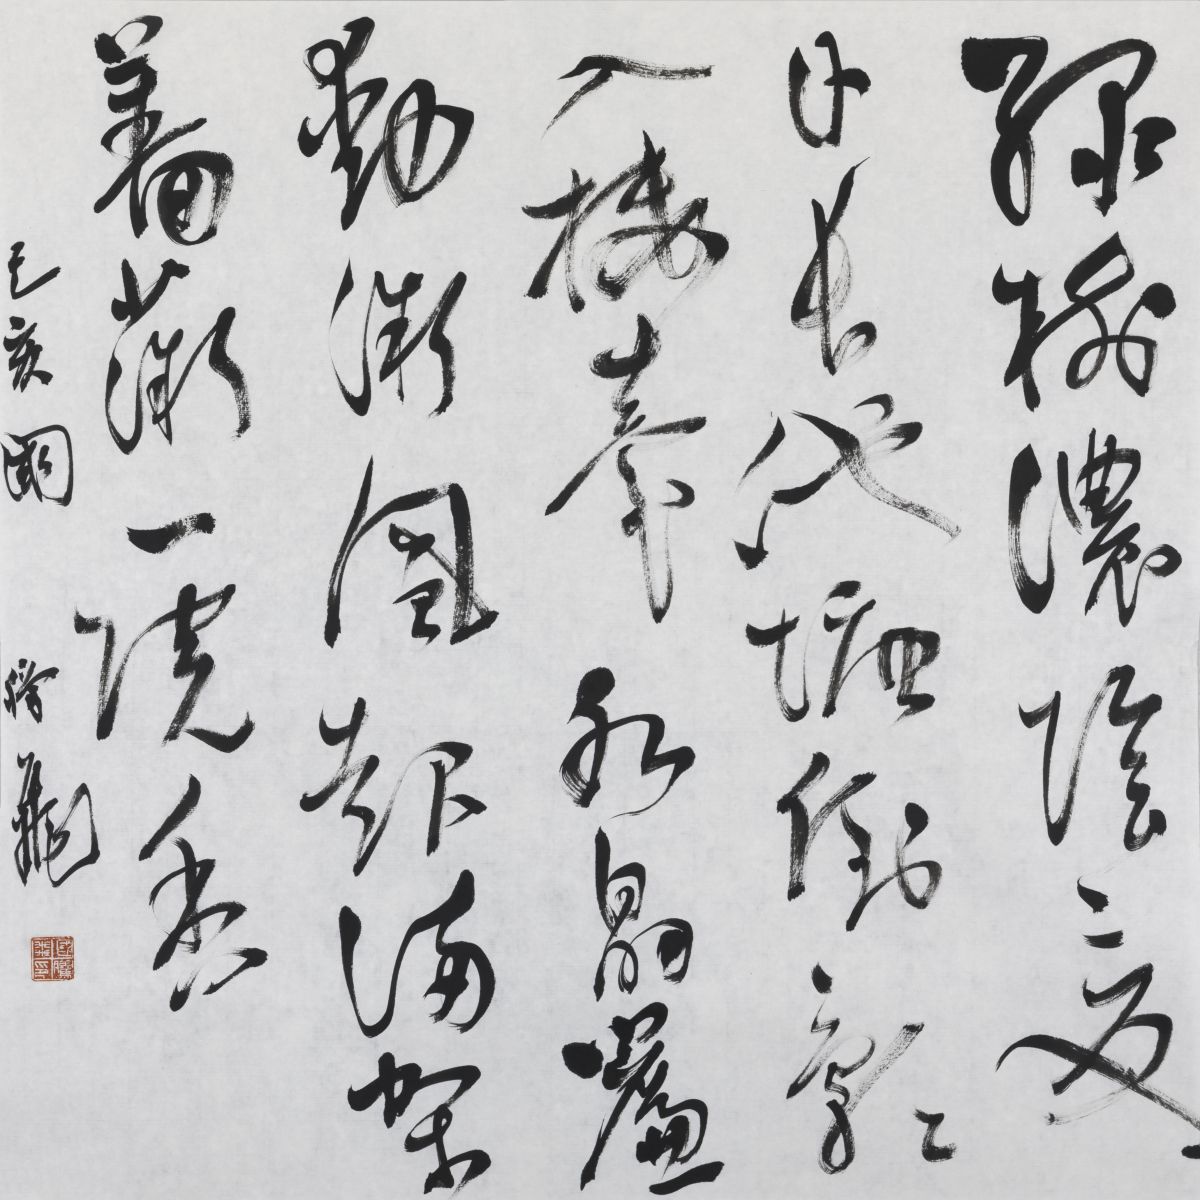 綠樹濃陰夏
日長池塘倒影
入樓臺水晶簾
動微風起滿架
薔薇一院香
己亥國